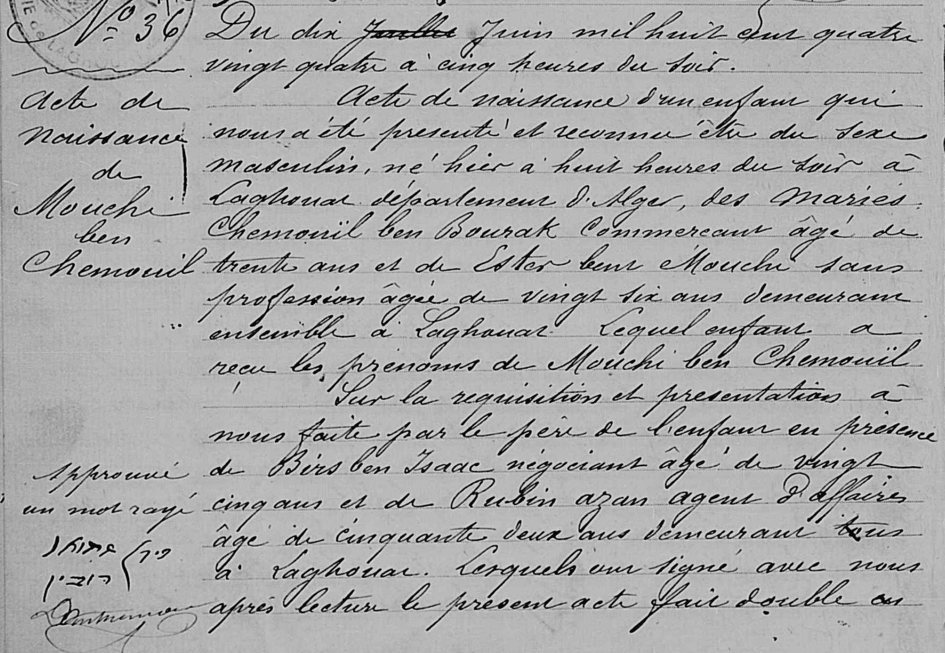 No 36
Acte de
naissance
de
Mouchi
ben
Chemouil
Approuvé
un mot rayé
רובין
Du dix Juillet Juin mil huit cent quatre
vingt quatre à cinq heures du soir.
Acte de naissance d'un enfant qui
nous a été presenté et reconnu être du sexe
masculin, né hier à huit heures du soir à
Laghouat département d'Alger, des mariés
Chemouïl ben Bourak commercant âgé de
trente ans et de Ester bent Mouchi sans
profession âgée de vingt six ans demeurant
ensemble à Laghouat. Lequel enfant a
reçu les prénoms de Mouchi ben Chemouïl
Sur la requisition et presentation à
nous faite par le père de l'enfant en présence
de Birs ben Isaac négociant âgé de vingt
cinq ans et de Rubin azan agent d'affaires
âgé de cinquante deux ans demeurant tous
à Laghouat. Lesquels ont signé avec nous
après lecture le présent acte fait double en